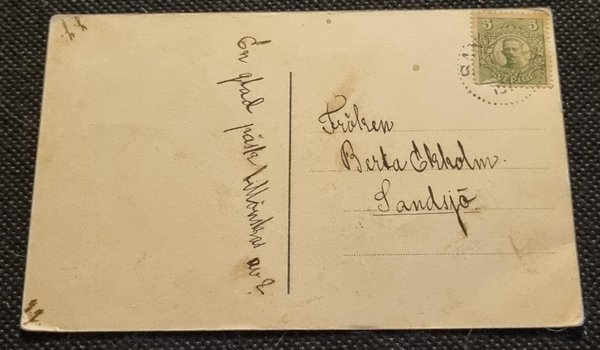 En glad påsk tillönskas av E.
Fröken
Berta Ekholm.
Sandsjö
5 5
SVERIGE